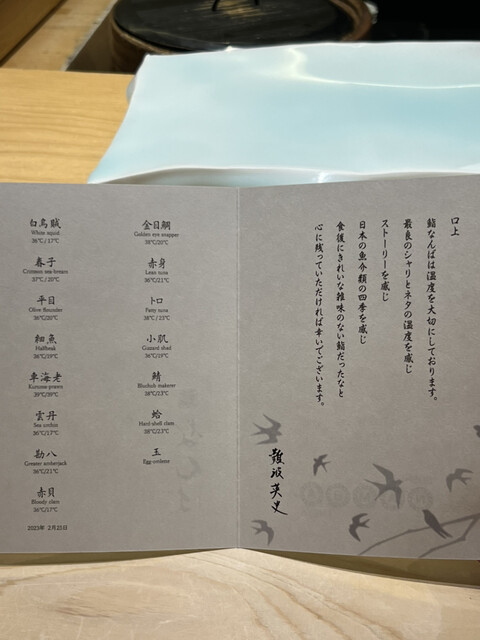 白烏賊
White squid
36℃/17℃
春子
Crimson sea bream
37℃/20℃
平目
Olive flounder
36℃/20℃
細魚
Halfbeak
36℃/19℃
車海老
Kuruma prawn
39℃/39℃
雲丹
Sea urchin
36℃/17℃
勘八
Greater amberjack
36℃/21℃
赤貝
Bloody clam
36℃/17℃
2023年 2月23日
金目鯛
Golden eye snapper
38℃/20℃
赤身
Lean tuna
36℃/21℃
トロ
Fatty tuna
38℃/22℃
小肌
Gizzard shad
36℃/19℃
鯖
38℃/23℃
蛤
Hard-shell clam
38℃/23℃
玉
Egg omlette
口上
鮨なんばは温度を大切にしております。
最良のシャリとネタの温度を感じ
ストーリーを感じ
日本の魚介類の四季を感じ
食後にきれいな雑味のない鮨だったなと
心に残っていただければ幸いでございます。
難波英史